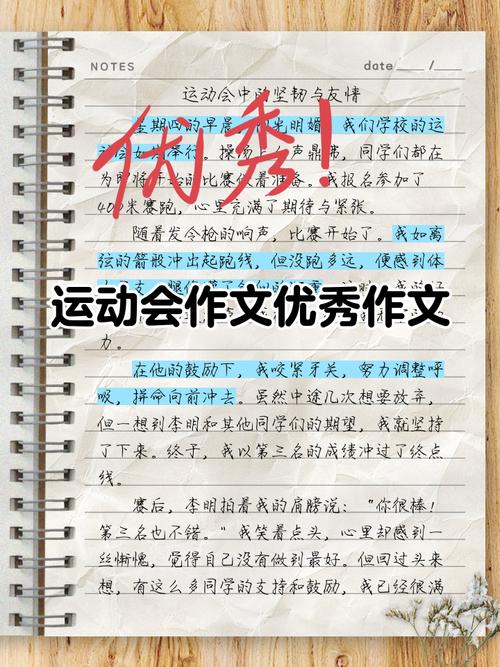 NOTES
date /
运动会中的坚韧与友情
星期四的早晨 阳光明媚 我们学校的运
动会 举行。操场 声鼎沸，同学们都在
为即将开始的比赛做着准备。我报名参加了
400米赛跑，心里充满了期待与紧张。
优秀！
随着发令枪的响声，比赛开始了。我如离
弦的箭般冲出起跑线，但没跑多远，便感到体
运动会作文优秀作文
力。
在他的鼓励下，我咬紧牙关，努力调整呼
吸，拼命向前冲去。虽然中途几次想要放弃，
但一想到李明和其他同学们的期望，我就坚持
了下来。终于，我以第三名的成绩冲过了终点
线。
赛后，李明拍着我的肩膀说：“你很棒！
第三名也不错。”我笑着点头，心里却感到一
丝惭愧，觉得自己没有做到最好。但回过头来
想，有这么多同学的支持和鼓励，我已经很满